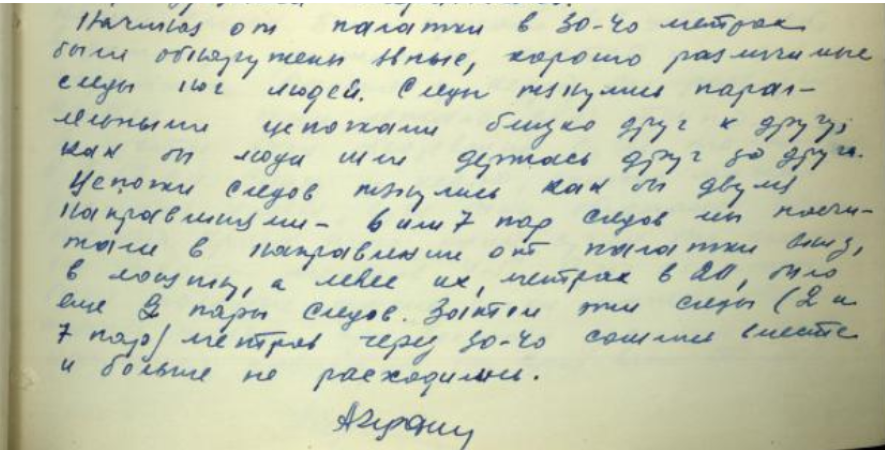 Начиная от палатки в 30-40 метрах
были обнаружены явные, хорошо различимые
следы ног людей. Следы тянулись парал-
лельными цепочками близко друг к другу,
как бы люди шли держась друг за друга.
Цепочки следов тянулись как бы двумя
направлениями - 6 или 7 пар следов мы насчи-
тали в направлении от палатки вниз,
в лощину, а левее их, метрах в 20, было
еще 2 пары следов. Затем эти следы (2 и
7 пар) метров через 30-40 сошлись вместе
и больше не расходились.